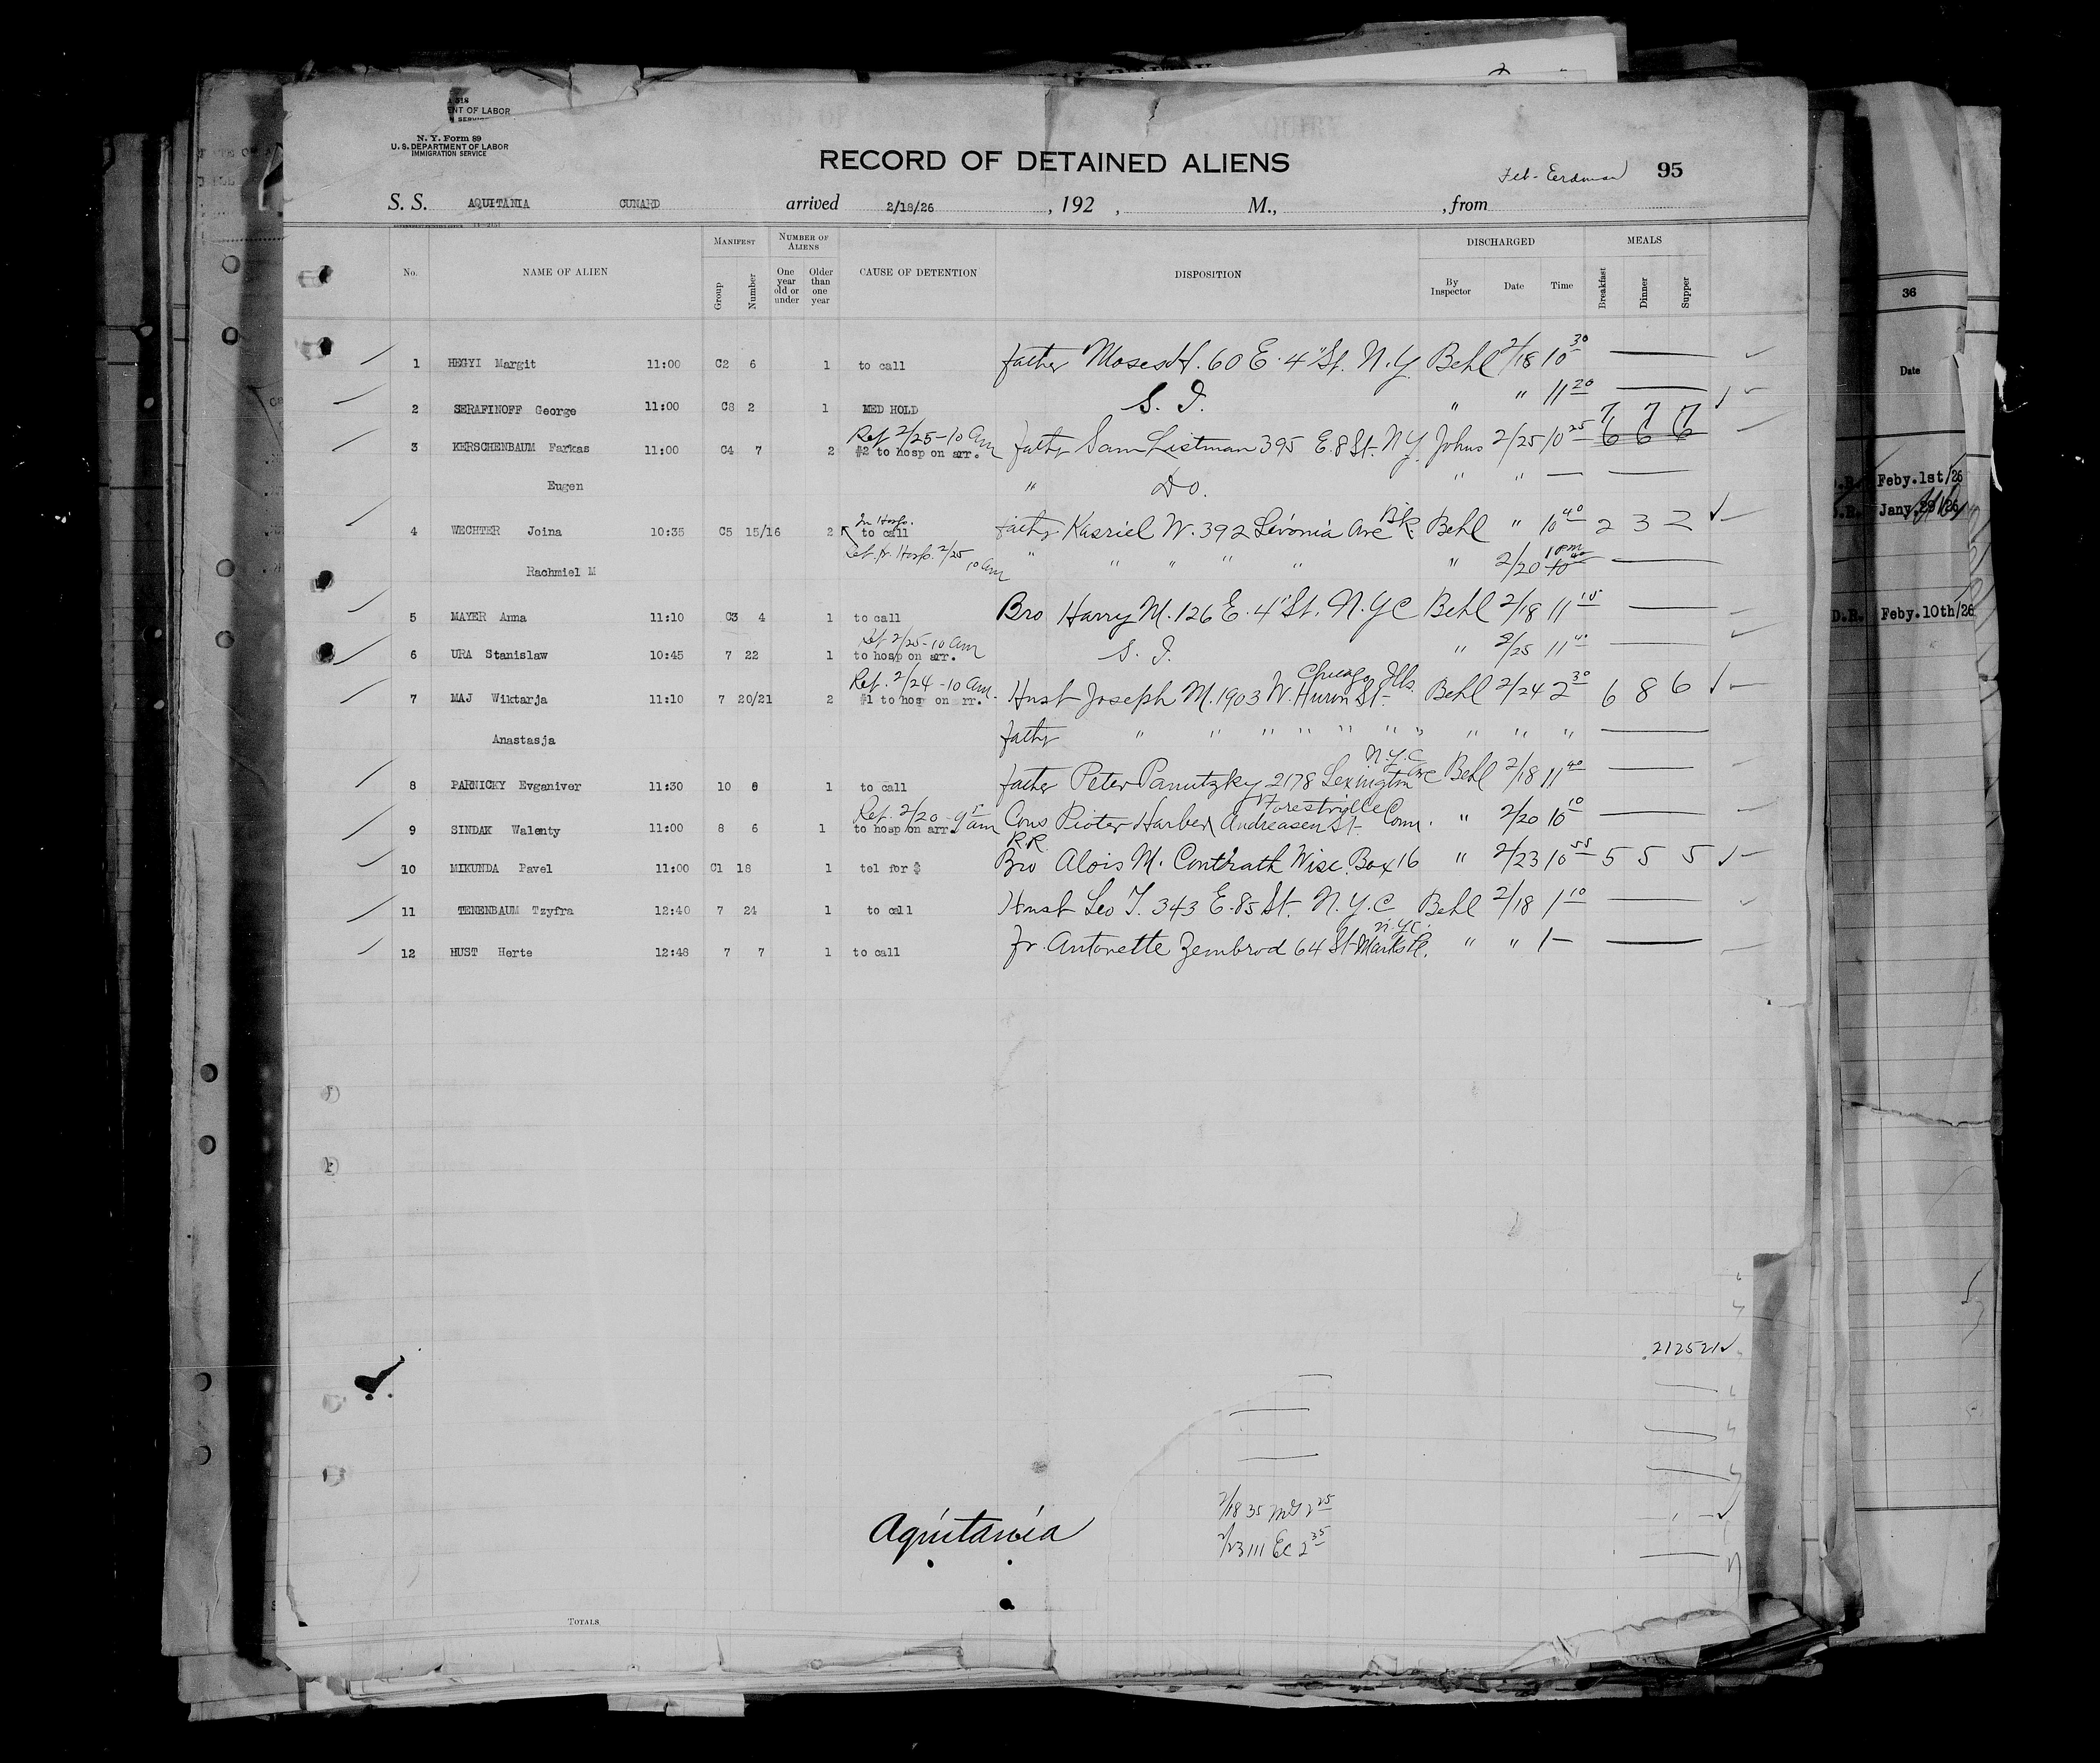 518
ENT OF LABOR
N. Y. Form 89
U. S. DEPARTMENT OF LABOR
IMMIGRATION SERVICE
RECORD OF DETAINED ALIENS
Eerdman 95
S. S. AQUITANIA CUNARD arrived 2/18/26 , 192 , M., , from
No. NAME OF ALIEN MANIFEST Group Number NUMBER OF ALIENS One year old or under Older than one year CAUSE OF DETENTION DISPOSITION DISCHARGED By Inspector Date Time MEALS Breakfast Dinner Supper
1 HEGYI Margit 11:00 C2 6 1 to call father Moses H. 60 E. 4" St. N.Y. Behl 2/18 10 30
2 SERAFINOFF George 11:00 C8 2 1 MED HOLD S. I. " " 11 20
Ret 2/25-10 am 7 7 7
3 KERSCHENBAUM Farkas 11:00 C4 7 2 #2 to hosp on arr. fathr Sam Listman 395 E. 8 St. N.Y. Johns 2/25 10 25 6 6 6
Eugen " Do. " "
In Hosp.
4 WECHTER Joina 10:35 C5 15/16 2 to call fathr Kasriel W. 392 Livonia Ave Bk Behl " 10 40 2 3 2
Ret. fr. Hosp. 2/25 10 am
Rachmiel M " " " " " " 2/20 1 pm
5 MAYER Anna 11:10 C3 4 1 to call Bro Harry M. 126 E. 4" St. N.Y.C Behl 2/18 11 15
Ret 2/25-10 am
6 URA Stanislaw 10:45 7 22 1 to hosp on arr. S. I. " 2/25 11 40
Ret. 2/24-10 am. Chicago Ills.
7 MAJ Wiktarja 11:10 7 20/21 2 #1 to hosp on arr. Husb Joseph M. 1903 W. Huron St. Behl 2/24 2 30 6 8 6
Anastasja fathr " " " " " " " " " "
N.Y.C
8 PARNICKY Evganiver 11:30 10 8 1 to call father Peter Panutzky 2178 Lexington Ave Behl 2/18 11 40
Ret. 2/20-9 am Forestville
9 SINDAK Walenty 11:00 8 6 1 to hosp on arr. Cous Pioter Harber Andreasen St. Conn. " 2/20 10 10
R.R.
10 MIKUNDA Pavel 11:00 C1 18 1 tel for $ Bro Alois M. Conrath Wisc. Box 16 " 2/23 10 55 5 5 5
11 TENENBAUM Tzyfra 12:40 7 24 1 to call Husb Leo T. 343 E. 85 St. N.Y.C Behl 2/18 1 10
N.Y.C.
12 HUST Herte 12:48 7 7 1 to call fr. Antonette Zembrod 64 St Marks Pl. " " 1
212521
2/18 35 2 25
2/23 111 Ec 2 35
Aquitania
TOTALS
36
Date
Feby.1st/26
D.R. Jany.29/26
D.R. Feby.10th/26